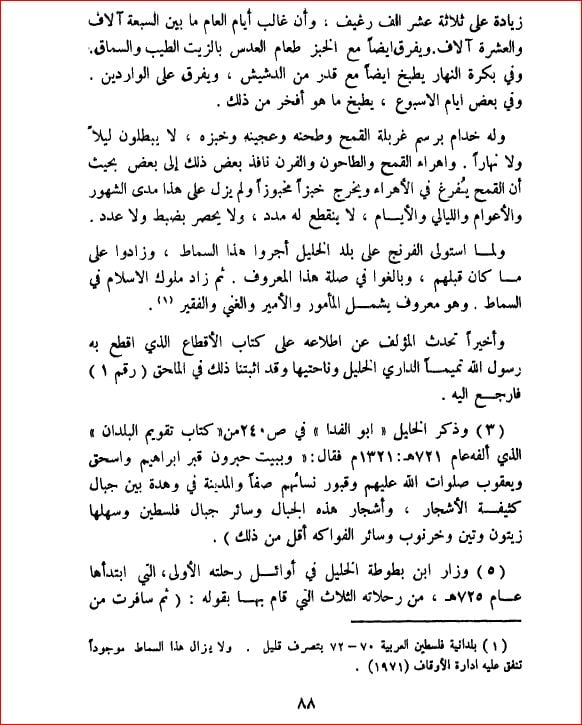 زيادة على ثلاثة عشر الف رغيف ، وأن غالب أيام العام ما بين السبعة آلاف
والعشرة آلاف.ويفرق ايضاً مع الخبز طعام العدس بالزيت الطيب والسماق.
وفي بكرة النهار يطبخ ايضاً مع قدر من الدشيش ، ويفرق على الواردين .
وفي بعض ايام الاسبوع ، يطبخ ما هو أفخر من ذلك .
وله خدام برسم غربلة القمح وطحنه وعجينه وخبزه ، لا يبطلون ليلاً
ولا نهاراً . واهراء القمح والطاحون والفرن نافذ بعض ذلك إلى بعض بحيث
أن القمح يُفرغ في الأهراء ويخرج خبزاً مخبوزاً ولم يزل على هذا مدى الشهور
والأعوام والليالي والأيام ، لا ينقطع له مدد ، ولا يحصر بضبط ولا عدد .
ولما استولى الفرنج على بلد الخليل أجروا هذا السماط ، وزادوا على
ما كان قبلهم ، وبالغوا في صلة هذا المعروف . ثم زاد ملوك الاسلام في
السماط . وهو معروف يشمل المأمور والأمير والغني والفقير (١) .
وأخيراً تحدث المؤلف عن اطلاعه على كتاب الأقطاع الذي اقطع به
رسول الله تميماً الداري الخليل وناحيتها وقد اثبتنا ذلك في الملحق ( رقم ١ )
فارجع اليه .
(٣) وذكر الخليل « ابو الفدا » في ص٢٤٠من«كتاب تقويم البلدان »
الذي ألفه عام ٧٢١هـ:١٣٢١م فقال:« وببيت حبرون قبر ابراهيم واسحق
ويعقوب صلوات الله عليهم وقبور نسائهم صفاً والمدينة في وهدة بين جبال
كثيفة الأشجار ، وأشجار هذه الجبال وسائر جبال فلسطين وسهلها
زيتون وتين وخرنوب وسائر الفواكه أقل من ذلك ) .
(٥) وزار ابن بطوطة الخليل في أوائل رحلته الأولى،التي ابتدأها
عام ٧٢٥هـ ، من رحلاته الثلاث التي قام بها بقوله : ( ثم سافرت من
(١) بلدانية فلسطين العربية ٧٠ – ٧٢ بتصرف قليل . ولا يزال هذا السماط موجوداً
تنفق عليه ادارة الأوقاف (١٩٧١) .
٨٨